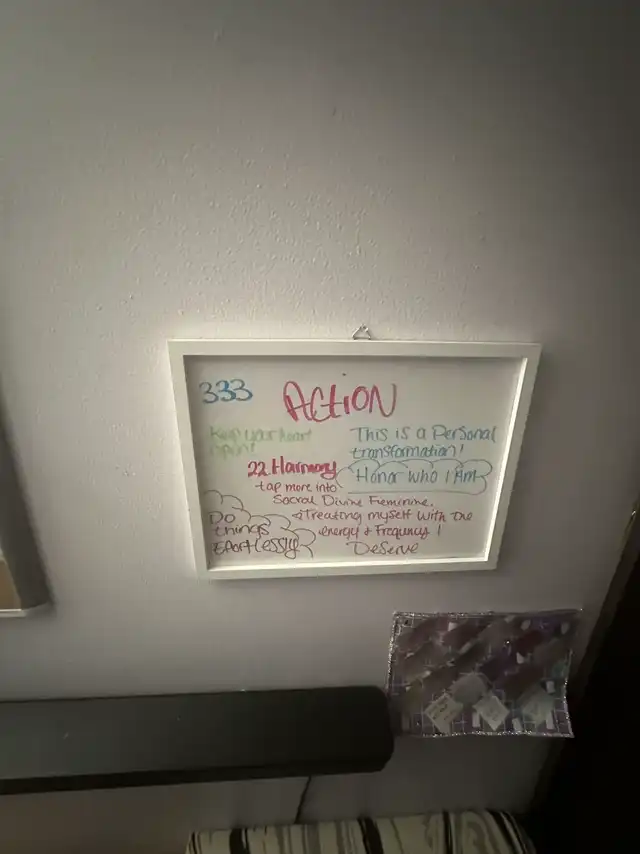 333
ACTION
Keep your heart
open!
This is a Personal
transformation!
22 Harmony
Honor who I AM
tap more into
Sacral Divine Feminine.
Do
things
Effortlessly
Treating myself with the
energy & Frequncy I
Deserve